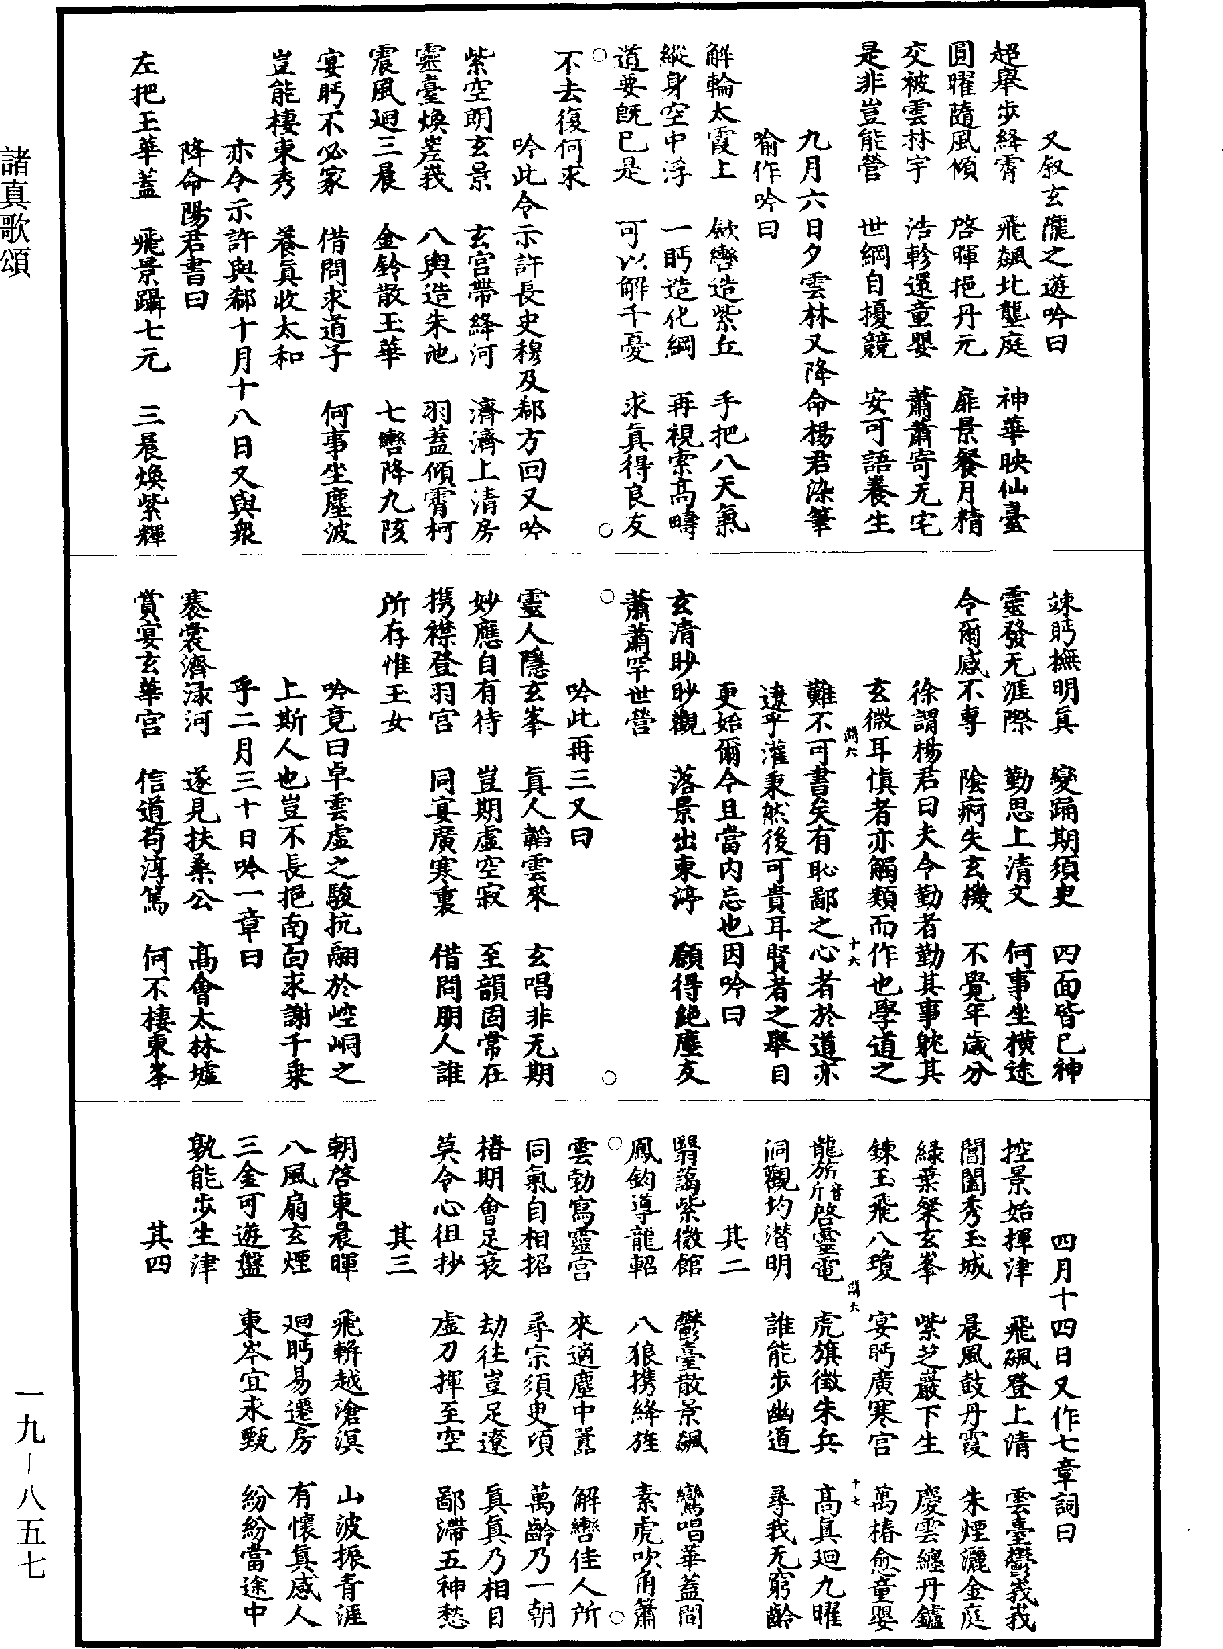 又叙玄隴之遊吟曰
超舉步絳霄　飛飆北壟庭　神華映仙臺
圓曜隨風傾　啓暉挹丹元　扉景餐月精
交被雲林宇　浩軫還童嬰　蕭蕭寄无宅
是非豈能營　世網自擾競　安可語養生
九月六日夕雲林又降命楊君染筆
喻作吟曰
解輪太霞上　斂轡造紫丘　手把八天氣
縱身空中浮　一眄造化綱　再視索高疇
道要既已是　可以解千憂　求真得良友
不去復何求
吟此令示許長史穆及郗方回又吟
紫空朗玄景　玄宮帶絳河　濟濟上清房
靈臺煥嵳峩　八輿造朱池　羽蓋傾霄柯
震風迴三晨　金鈴散玉華　七轡降九陔
宴眄不必家　借問求道子　何事坐塵波
豈能棲東秀　養真收太和
亦令示許與郗十月十八日又與衆
降命陽君書曰
左把玉華蓋　飛景躡七元　三晨煥紫輝
竦眄撫明真　變踊期須臾　四面皆已神
靈發无涯際　勤思上清文　何事坐橫途
令爾感不專　陰痾失玄機　不覺年歲分
徐謂楊君曰夫令勤者勤其事躭其
玄微耳慎者亦觸類而作也學道之
難不可書矣有恥鄙之心者於道亦
遼乎灌秉然後可貴耳賢者之舉目
更始爾今且當內忘也因吟曰
玄清眇眇觀　落景出東渟　願得絕塵友
蕭蕭罕世營
吟此再三又曰
靈人隱玄峯　真人韜雲來　玄唱非无期
妙應自有待　豈期虛空寂　至韻固常在
携襟登羽宮　同宴廣寒裏　借問朋人誰
所存惟玉女
吟竟曰卓雲虛之駿抗翮於崆峒之
上斯人也豈不長挹南面求謝千乗
乎二月三十日吟一章曰
褰裳濟淥河　遂見扶桑公　高會太林墟
賞宴玄華宮　信道苟淳篤　何不棲東峯
四月十四日又作七章詞曰
控景始揮津　飛飆登上清　雲臺鬱峩峩
閶闔秀玉城　晨風鼓丹霞　朱煙灑金庭
綠葉粲玄峯　紫芝巖下生　慶雲纏丹鑪
鍊玉飛八瓊　宴眄廣寒宮　萬椿愈童嬰
龍旂音斤啓臺電　虎旗徵朱兵　高真迴九曜
洞觀均潜明　誰能步幽道　尋我无窮齡
其二
翳藹紫微館　鬱臺散景飆　鸞唱華蓋間
鳳鈞導龍軺　八狼携絳旌　素虎吹角簫
雲勃寫靈宮　來適塵中囂　解轡佳人所
同氣自相招　尋宗須臾頃　萬齡乃一朝
椿期會足衰　劫往豈足遼　真真乃相目
莫令心徂抄　虛刀揮至空　鄙滯五神愁
其三
朝啓東晨暉　飛軿越滄溟　山波振青涯
八風扇玄煙　迴眄易遷房　有懷真感人
三金可遊盤　東岑宜求甄　紛紛當途中
孰能步生津
其四
諸真歌頌
一九－八五七